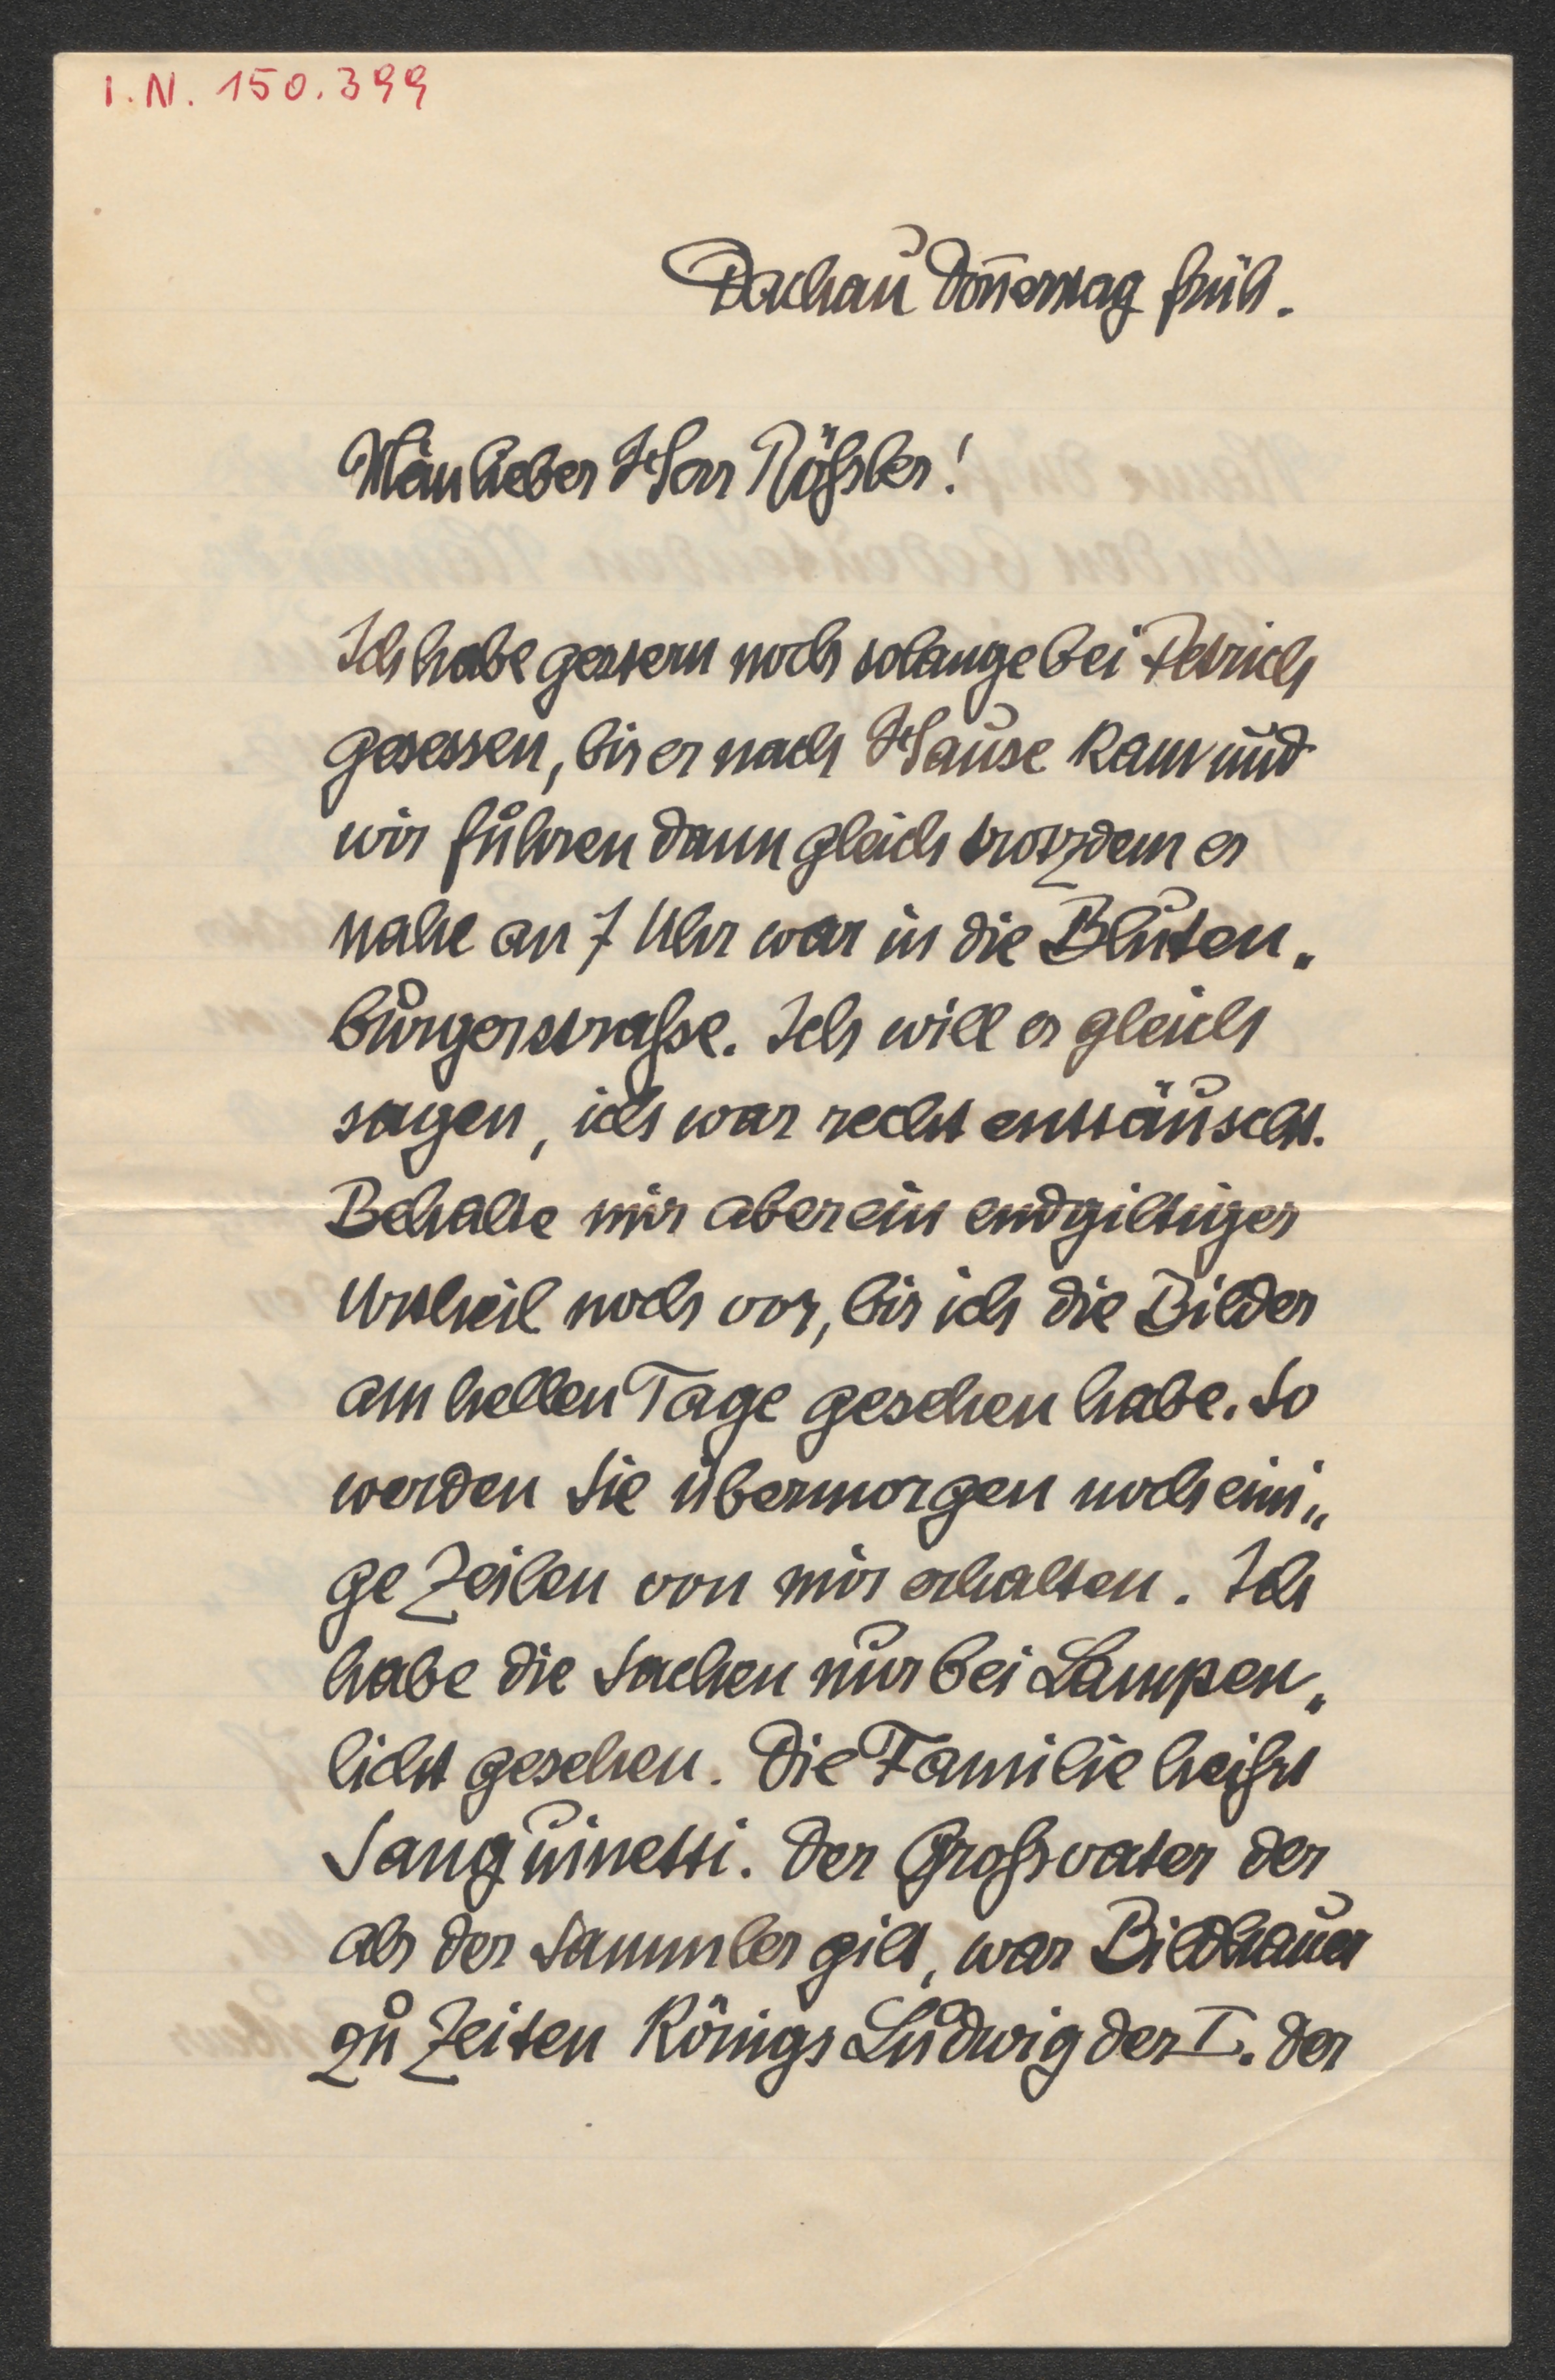 I.N. 150.399
Dachau Don̄erstag früh.
Mein lieber Herr Rößler!
Ich habe gestern noch solange bei Petrich
gesessen, bis er nach Hause kam und
wir fuhren dann gleich trotzdem es
nahe an 7 Uhr war in die Bluten„
burgerstraße. Ich will es gleich
sagen, ich war recht enttäuscht.
Behalte mir aber ein endgiltiges
Urtheil noch vor, bis ich die Bilder
am hellen Tage gesehen habe. So
werden Sie übermorgen noch eini„
ge Zeilen von mir erhalten. Ich
habe die Sachen nur bei Lampen„
licht gesehen. Die Familie heißt
Sanguinetti. Der Großvater der
als der Sammler gilt, war Bildhauer
zu Zeiten Königs Ludwig des I. der